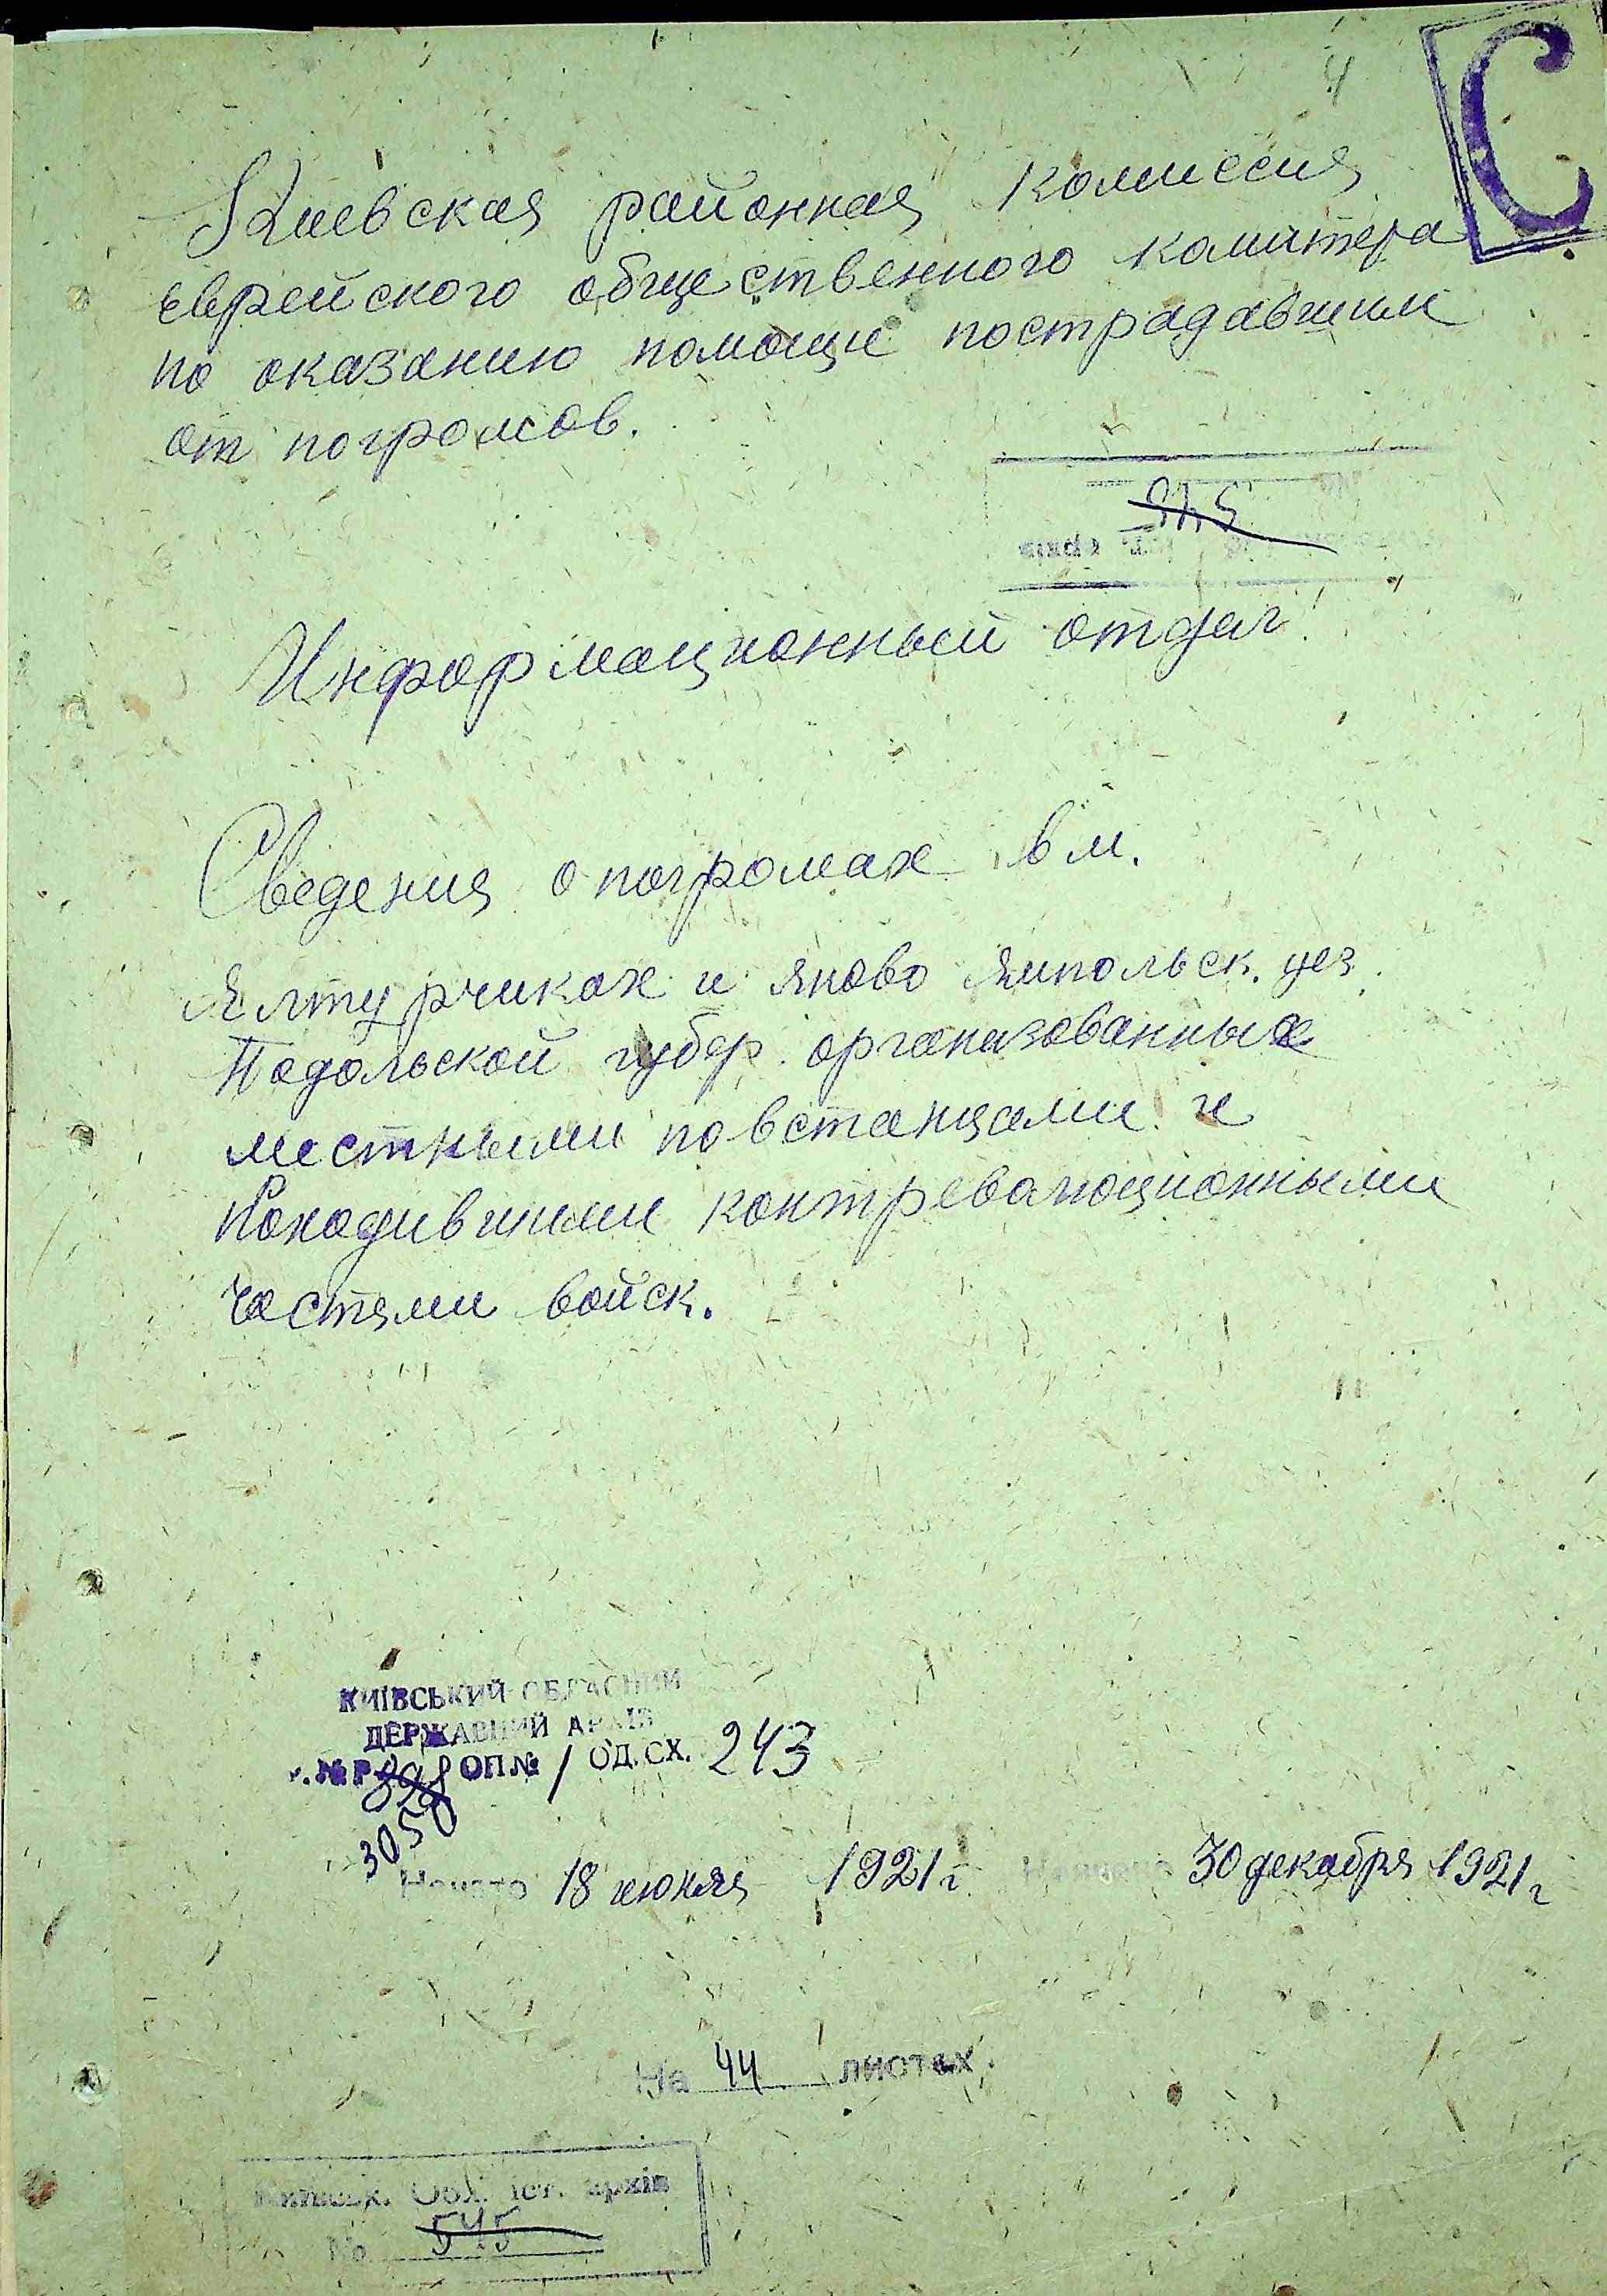 4
С
Киевская районная комиссия
еврейского общественного комитета
по оказанию помощи пострадавшим
от погромов.
545
Информационный отдел
Сведения о погромах в м.
Ялтурчиках и Яново Ямпольск. уез.
Подольской губер. организованных
местными повстанцами и
проходившими контреволюционными
частями войск.
КИЇВСЬКИЙ ОБЛАСНИЙ
ДЕРЖАВНИЙ АРХІВ
Ф. № Р 398 ОП № 1 ОД. СХ. 243
3050
Начато 18 июня 1921 г 30 декабря 1921 г
На 44 листах
Київськ. Обл. іст. архів
№ 545